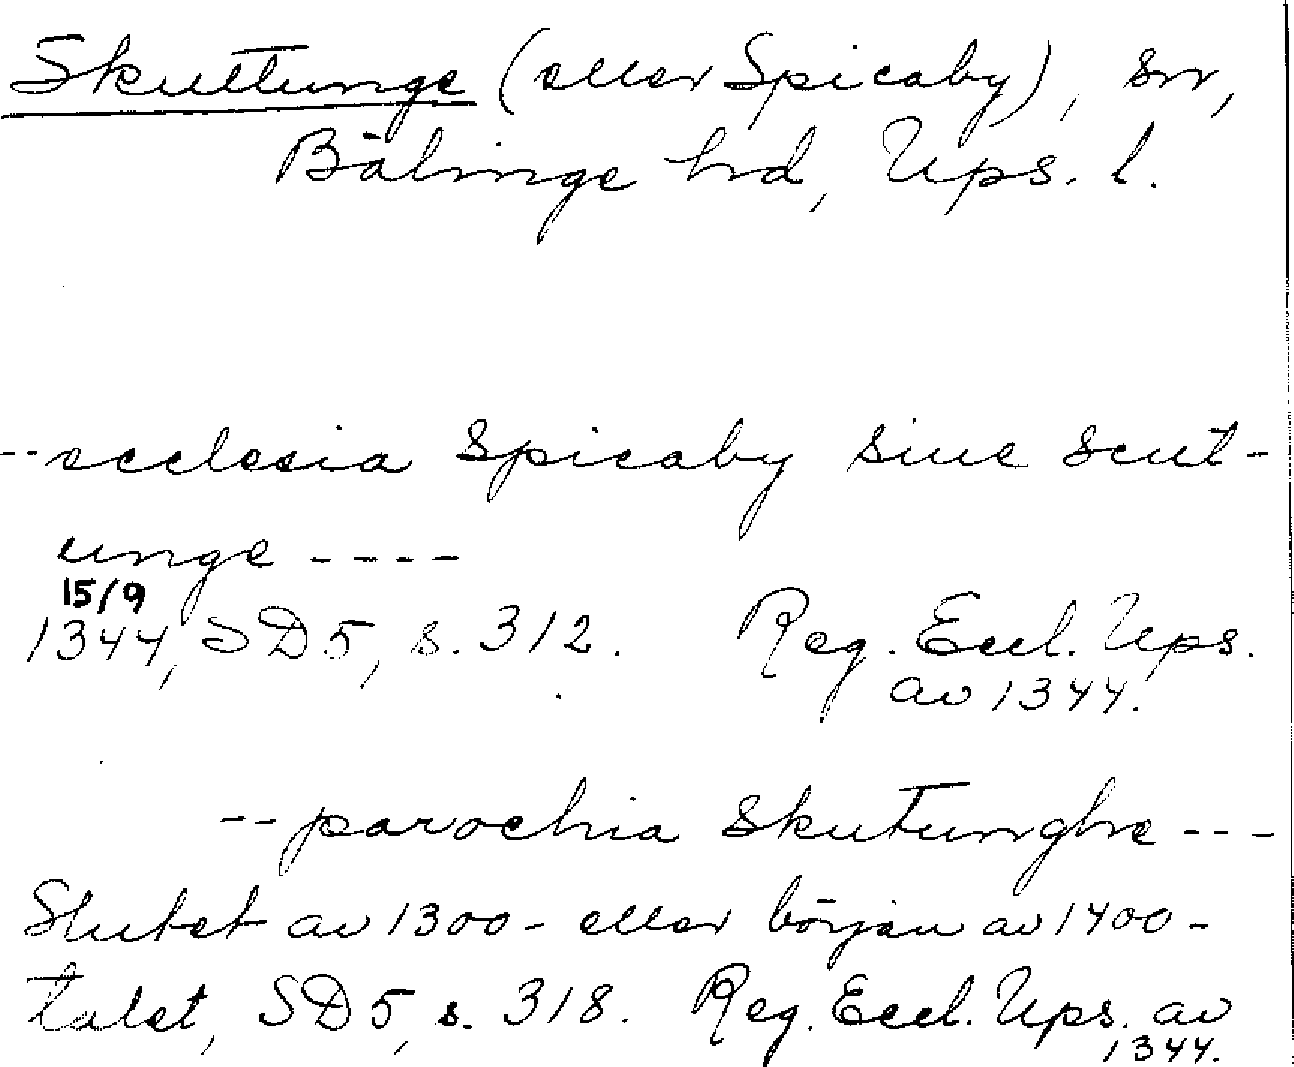 Skuttunge (eller Spicaby), sn,
Bälinge hd, Ups. l.
--ecclesia Spicaby siue Scut-
unge ----
15/9
1344, SD5, s. 312. Reg. Eccl. Ups.
av 1344.
--parochia Skutunghe---
Slutet av 1300- eller början av 1400-
talet, SD5, s. 318. Reg. Eccl. Ups. av
1344.